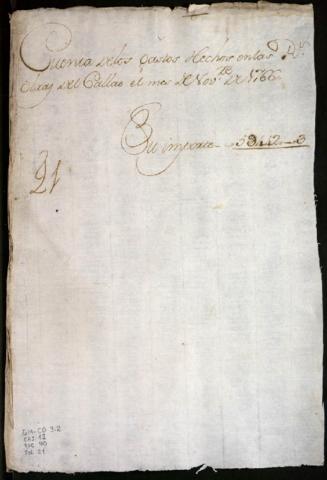 Cuenta de los Gastos Hechos en las Rs
Obras del Callao el mes de Novre de 1766
Su importe
21
GM-CO 3.2
CAJ. 12
DOC. 90
Fol. 21